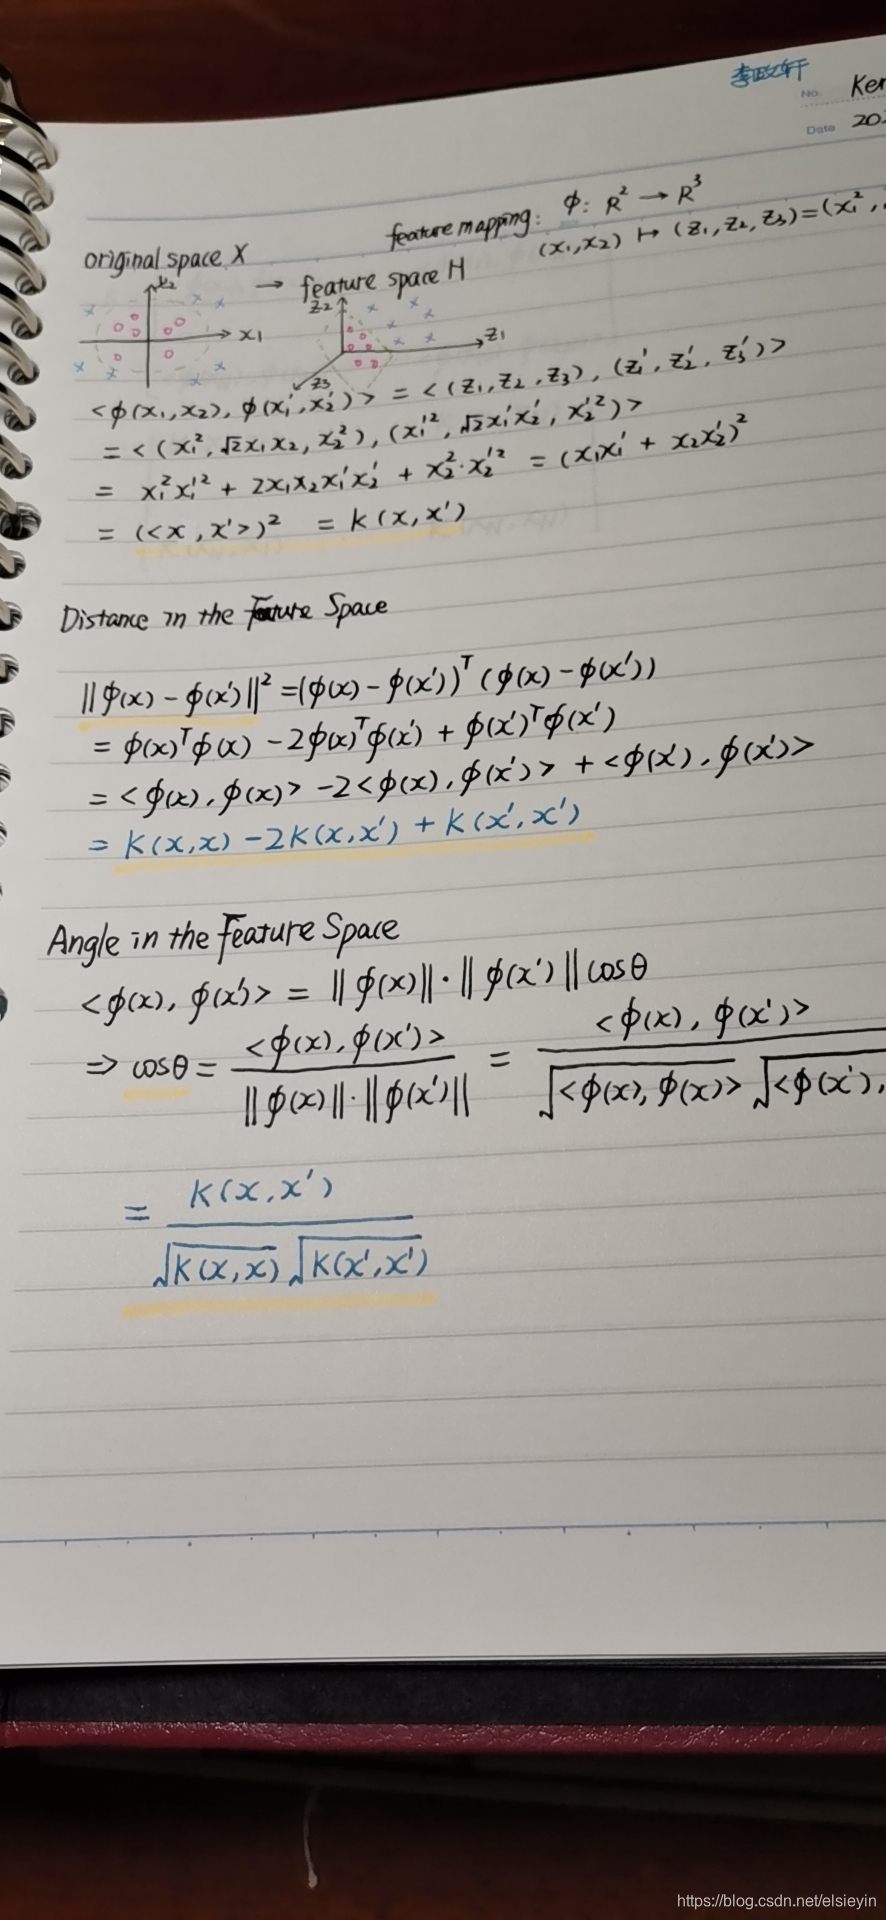 李政轩
No. Ker
Date 202
feature mapping: ϕ: R² → R³
(x₁,x₂) ↦ (z₁,z₂,z₃)=(x₁²,
original space X → feature space H
x₂
x₁
z₂
z₁
z₃
<ϕ(x₁,x₂), ϕ(x₁',x₂')> = <(z₁,z₂,z₃), (z₁',z₂',z₃')>
= <(x₁²,√2x₁x₂,x₂²),(x₁'²,√2x₁'x₂',x₂'²)>
= x₁²x₁'² + 2x₁x₂x₁'x₂' + x₂²·x₂'² = (x₁x₁' + x₂x₂')²
= (<x,x'>)² = K(x,x')
Distance in the Feature Space
||ϕ(x) - ϕ(x')||² =(ϕ(x) - ϕ(x'))ᵀ(ϕ(x) - ϕ(x'))
= ϕ(x)ᵀϕ(x) - 2ϕ(x)ᵀϕ(x') + ϕ(x')ᵀϕ(x')
= <ϕ(x),ϕ(x)> - 2<ϕ(x),ϕ(x')> + <ϕ(x'),ϕ(x')>
= K(x,x) - 2K(x,x') + K(x',x')
Angle in the Feature Space
<ϕ(x), ϕ(x')> = ||ϕ(x)||·||ϕ(x')|| cosθ
⇒ cosθ = <ϕ(x),ϕ(x')> / ||ϕ(x)||·||ϕ(x')|| = <ϕ(x),ϕ(x')> / √<ϕ(x),ϕ(x)> √<ϕ(x'),
= K(x,x') / √K(x,x) √K(x',x')
https://blog.csdn.net/elsieyin